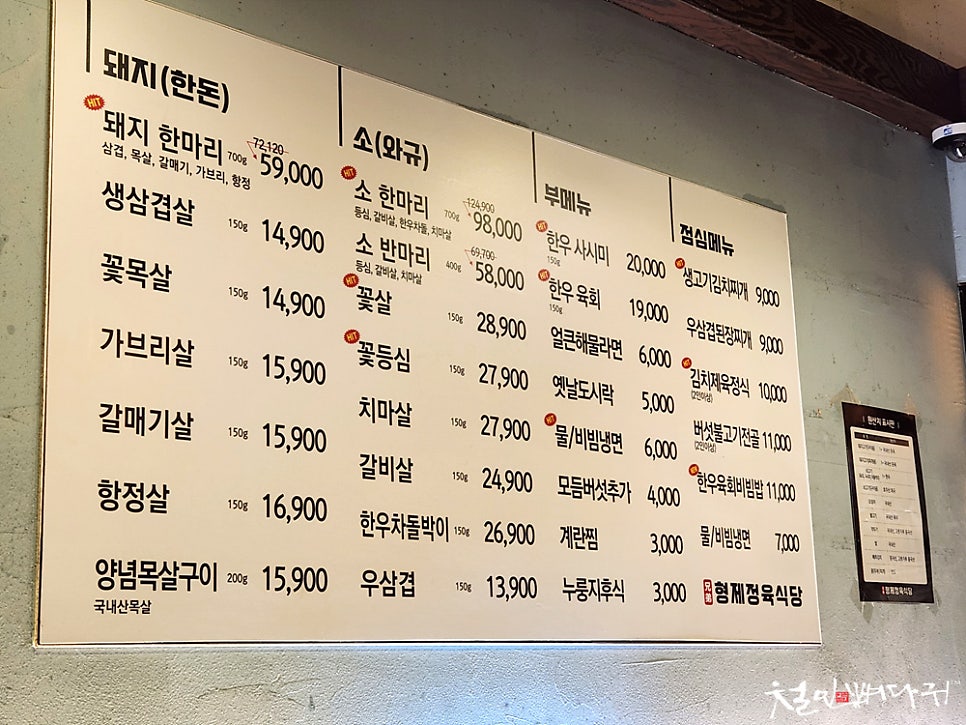 돼지(한돈)
HIT
돼지 한마리 700g 72,120 59,000
삼겹, 목살, 갈매기, 가브리, 항정
생삼겹살 150g 14,900
꽃목살 150g 14,900
가브리살 150g 15,900
갈매기살 150g 15,900
항정살 150g 16,900
양념목살구이 200g 15,900
국내산목살
소(와규)
HIT
소 한마리 700g 124,900 98,000
등심, 갈비살, 한우차돌, 치마살
소 반마리 400g 69,700 58,000
등심, 갈비살, 치마살
HIT
꽃살 150g 28,900
HIT
꽃등심 150g 27,900
치마살 150g 27,900
갈비살 150g 24,900
한우차돌박이 150g 26,900
우삼겹 150g 13,900
부메뉴
HIT
한우 사시미 20,000
150g
HIT
한우 육회 19,000
150g
얼큰해물라면 6,000
옛날도시락 5,000
HIT
물/비빔냉면 6,000
모듬버섯추가 4,000
계란찜 3,000
누룽지후식 3,000
점심메뉴
HIT
생고기김치찌개 9,000
우삼겹된장찌개 9,000
HIT
김치제육정식 10,000
(2인이상)
버섯불고기전골 11,000
(2인이상)
HIT
한우육회비빔밥 11,000
물/비빔냉면 7,000
兄弟 형제정육식당
원산지 표시판
형제정육식당